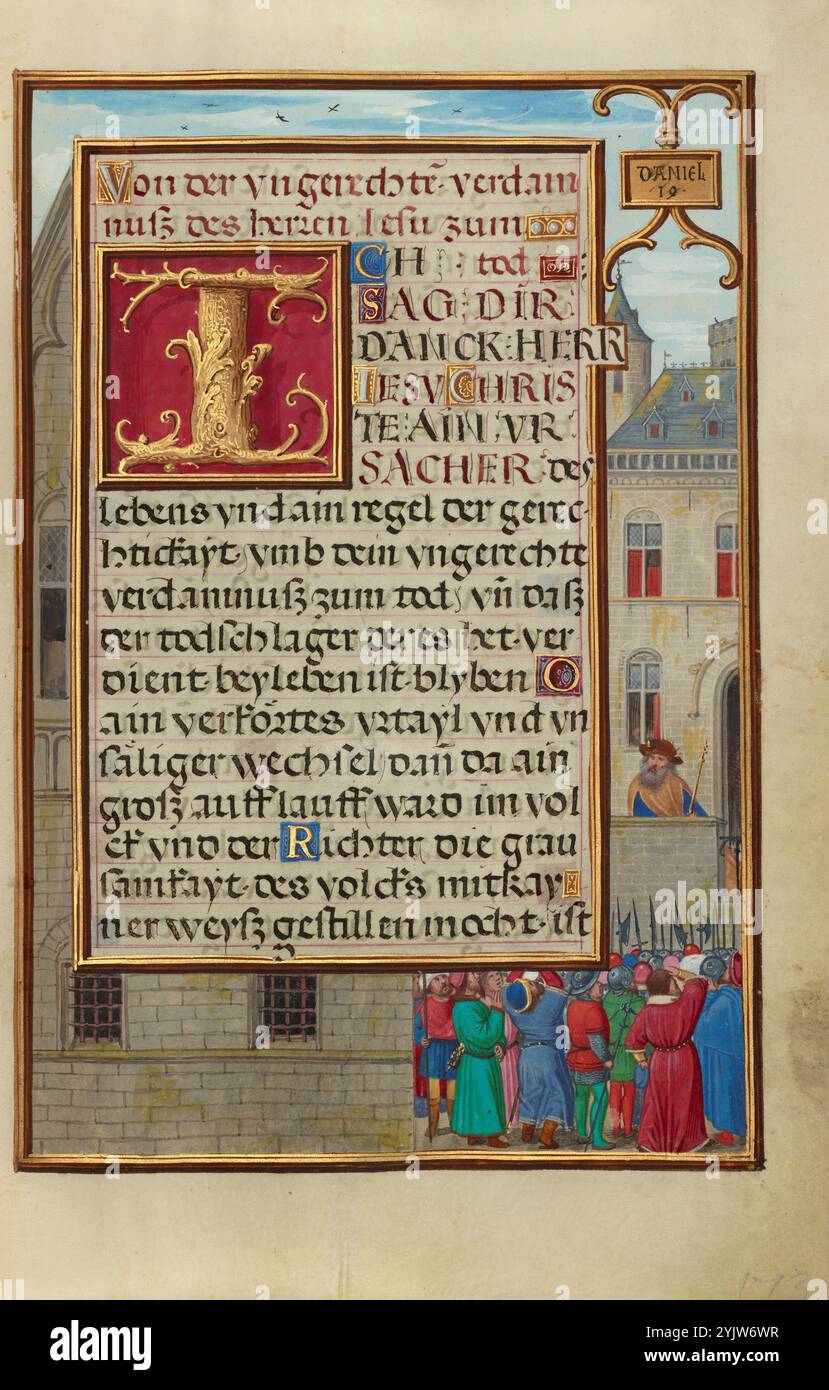 Von der vngerechtē verdam
nusz des herren Iesu zum
ICH tod
SAG DIR
DANCK HERR
IESV CHRIS
TE AIN VR
SACHER des
lebens vnd ain regel der gerec-
htickayt vmb dein vngerechte
verdamnusz zum tod vn̄ dasz
der todschlager der es het ver
dient bey leben ist blyben O
ain verkörtes vrtayl vnd vn
säliger wechsel dan̄ da ain
grosz aufflauff ward im vol
ck vnd der Richter die grau
samkayt des volcks mit kay
ner weysz gestillen mocht ist
DANIEL
19
alamy
Image ID: 2YJW6WR
www.alamy.com